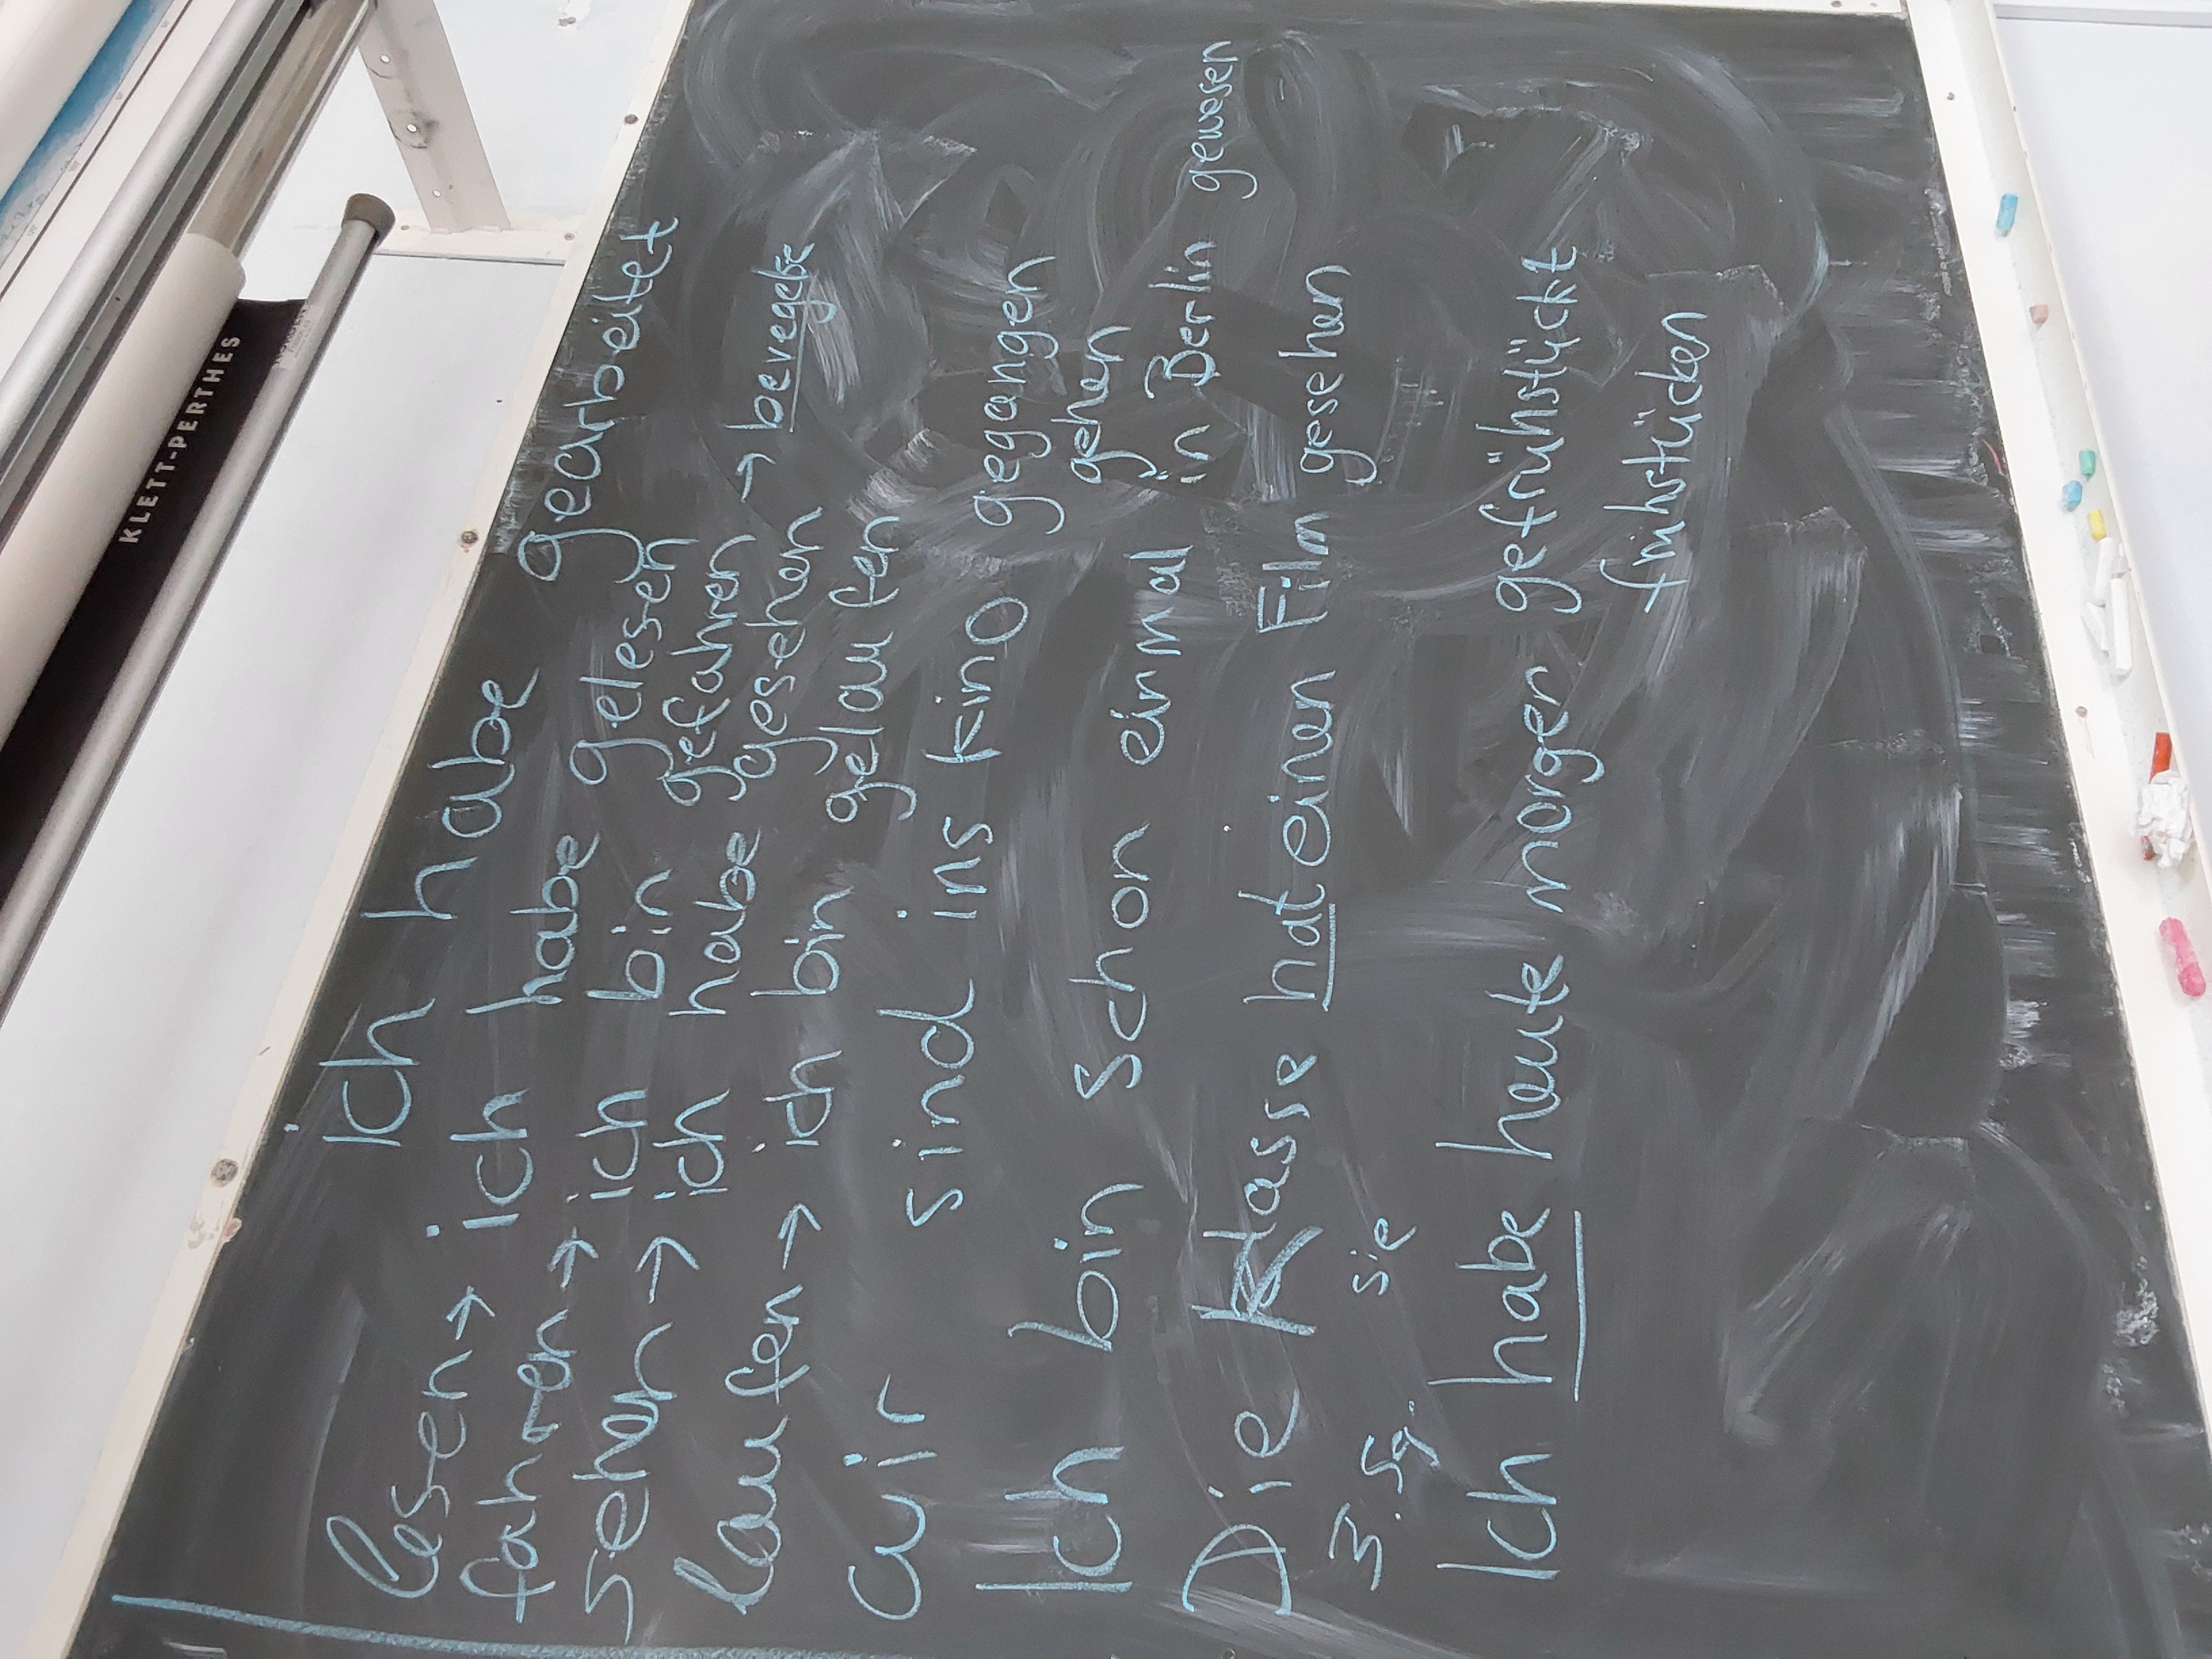 KLETT-PERTHES
ich habe gearbeitet
lesen → ich habe gelesen
fahren → ich bin gefahren → bevegelse
sehen → ich habe gesehen
laufen → ich bin gelaufen
wir sind ins kino gegangen
gehen
Ich bin schon einmal in Berlin gewesen
Die Klasse hat einen Film gesehen
3. Sg. sie
Ich habe heute morgen gefrühstückt
frühstücken